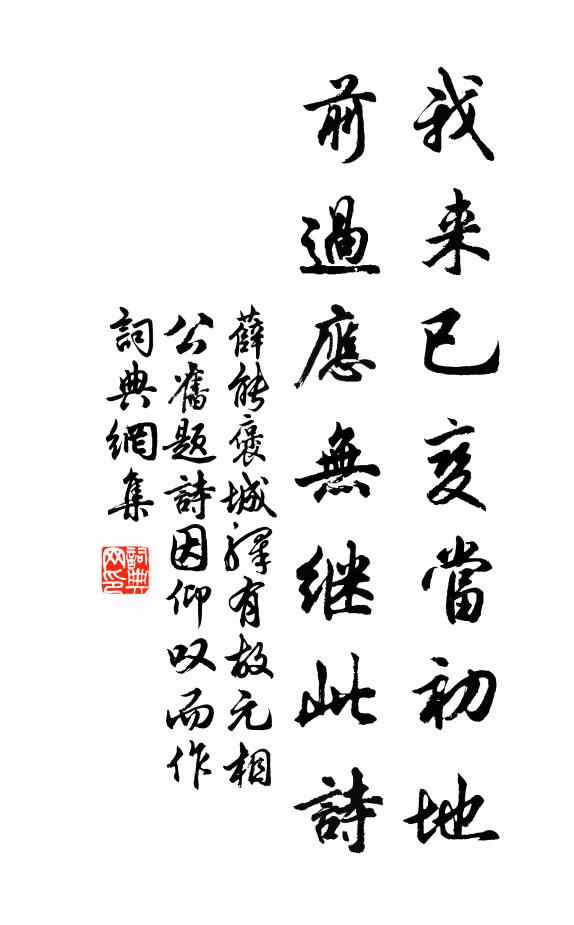 我来已变當初地
前過應無継此詩
薛能褒城驛有故元相
公舊題詩因仰叹而作
詞典網集
詞典网印